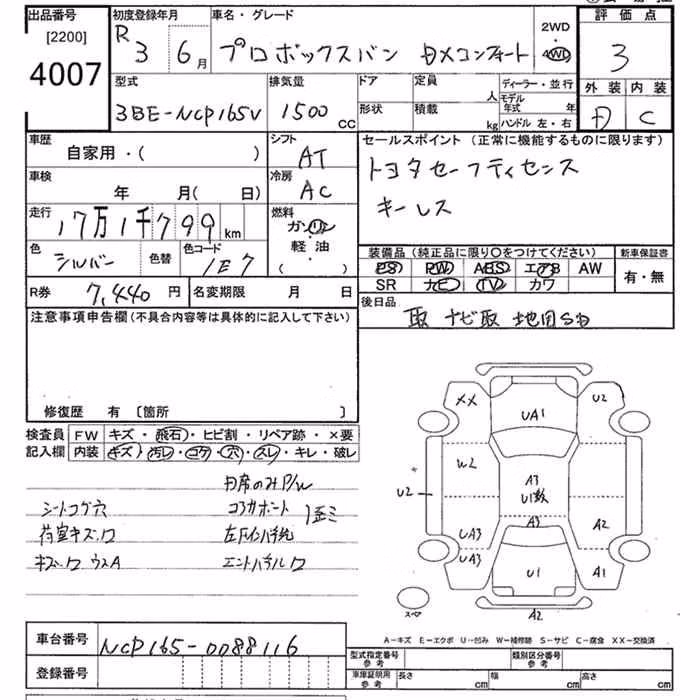 出品番号
[2200]
4007
初度登録年月
R 3 6月
車名・グレード
プロボックスバン DXコンフォート
2WD
4WD
評価点
3
外装 内装
D C
型式
3BE-NCP165V
排気量
1500 cc
ドア
形状
定員 人
積載 kg
ディーラー・並行
モデル年式 年
ハンドル 左・右
車歴
自家用・( )
シフト
AT
セールスポイント (正常に機能するものに限ります)
トヨタセーフティセンス
キーレス
車検
年 月(日)
冷房
AC
走行
17万1千799km
燃料
ガソリン
軽・油
( )
色
シルバー
色替
色コード
1E7
装備品(純正品に限り〇をつけてください)
PS PW ABS エアB AW
SR ナビ TV カワ
新車保証書
有・無
R券 7,440円
名変期限 月 日
後日品
取 ナビ取 地図SD
注意事項申告欄(不具合内容等は具体的に記入して下さい)
修復歴 有 〔箇所 〕
検査員
記入欄
FW キズ・飛石・ヒビ割・リペア跡・×要
内装 キズ・汚レ・コゲ・穴・スレ・キレ・破レ
シートコゲ穴
荷室キズ
キズ
XX
UA1
U2
W2
U2
A3
U1数
A3
UA3
UA3
A2
U1
A1
スペア
A2
A-キズ E-エクボ U-凹み W-補修跡 S-サビ C-腐食 XX-交換済
車台番号
NCP165-0088116
登録番号
型式指定番号
参考
類別区分番号
参考
車庫証明用
参考
長さ cm
幅 cm
高さ cm